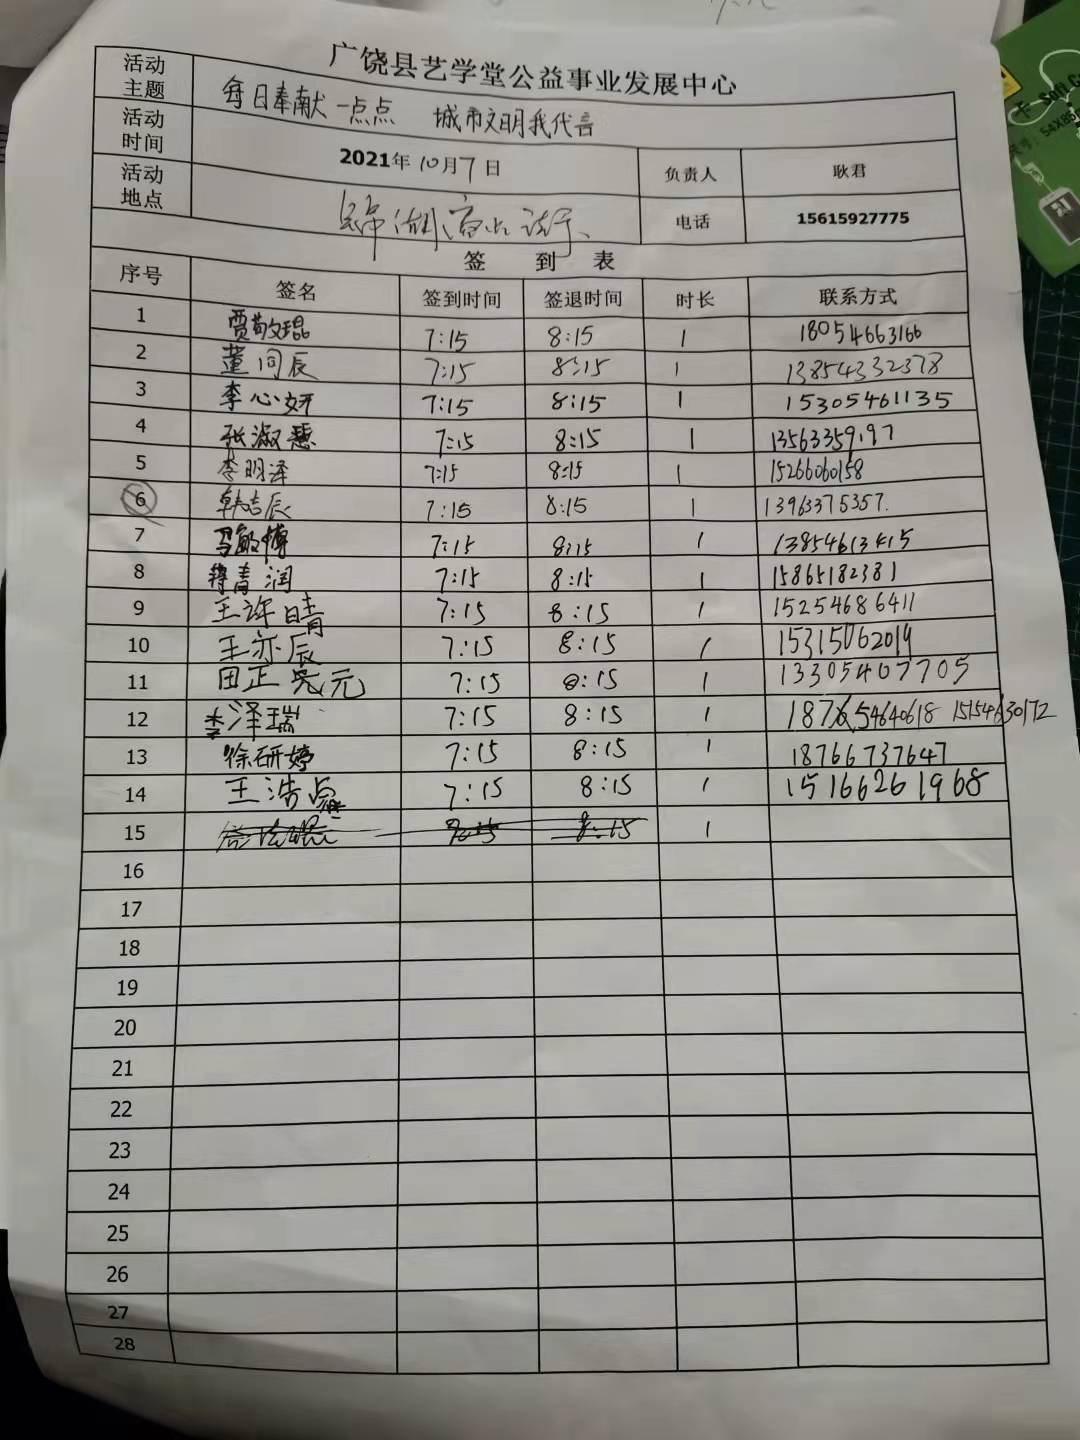 广饶县艺学堂公益事业发展中心
活动主题 每日奉献一点点 城市文明我代言
活动时间 2021年10月7日 负责人 耿君
活动地点 电话 15615927775
签 到 表
序号 签名 签到时间 签退时间 时长 联系方式
1 贾敬琨 7:15 8:15 1 18054663166
2 董同辰 7:15 8:15 1 13854332378
3 李心妍 7:15 8:15 1 15305461135
4 张淑慧 7:15 8:15 1 13563359197
5 李明泽 7:15 8:15 1 15266060158
6 韩吉辰 7:15 8:15 1 13963375357.
7 马敏博 7:15 8:15 1 13854613415
8 青润 7:15 8:15 1 15865182381
9 王许晴 7:15 8:15 1 15254686411
10 王亦辰 7:15 8:15 1 15315062019
11 田正元 7:15 8:15 1 13305407705
12 李泽瑞 7:15 8:15 1 187654640618 15154630172
13 徐研婷 7:15 8:15 1 18766737647
14 王浩 7:15 8:15 1 15166261968
15 8:15 1
16
17
18
19
20
21
22
23
24
25
26
27
28